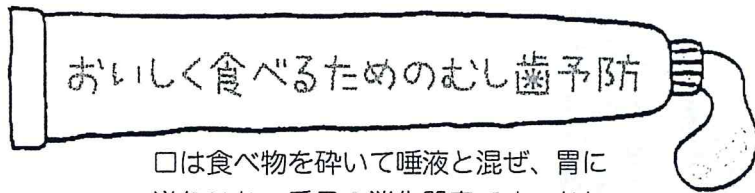 おいしく食べるためのむし歯予防
口は食べ物を砕いて唾液と混ぜ、胃に